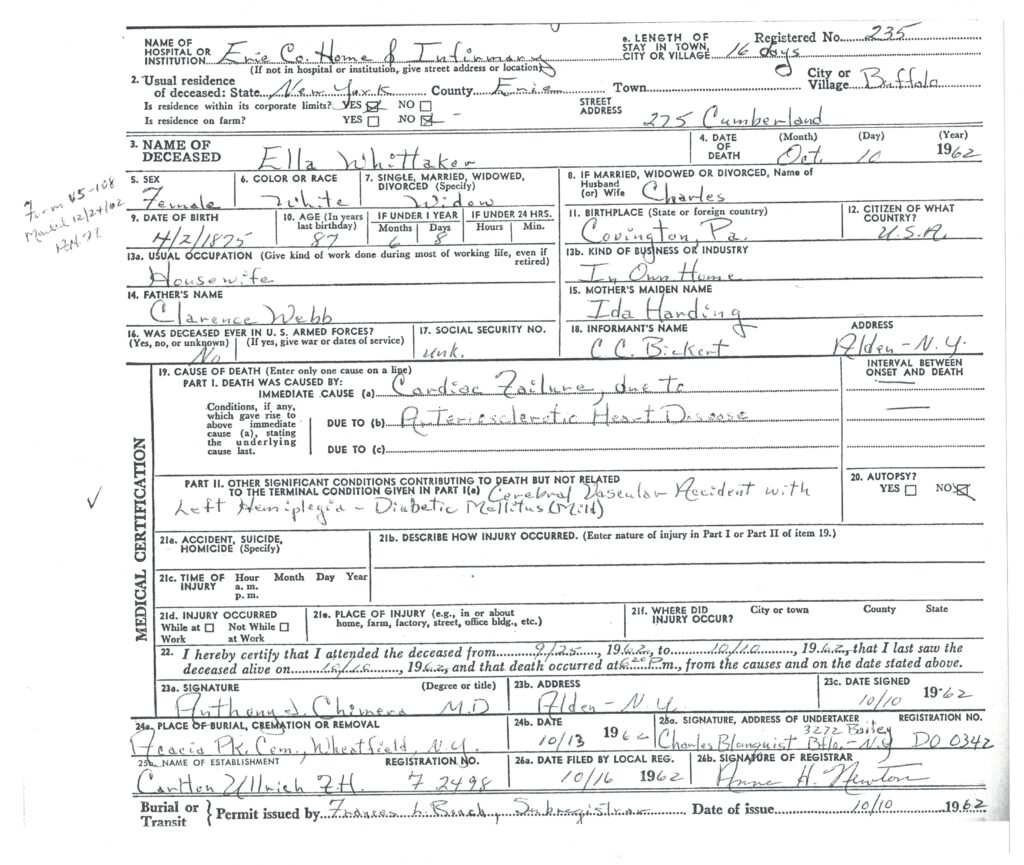 NAME OF HOSPITAL OR INSTITUTION Erie Co. Home & Infirmary
(If not in hospital or institution, give street address or location)
e. LENGTH OF STAY IN TOWN, CITY OR VILLAGE 16 days
Registered No. 235
2. Usual residence of deceased: State New York County Erie Town City or Village Buffalo
Is residence within its corporate limits? YES ☒ NO ☐
Is residence on farm? YES ☐ NO ☒ –
STREET ADDRESS 275 Cumberland
3. NAME OF DECEASED Ella Whittaker
4. DATE OF DEATH (Month) (Day) (Year) Oct. 10 1962
5. SEX Female
6. COLOR OR RACE White
7. SINGLE, MARRIED, WIDOWED, DIVORCED (Specify) Widow
8. IF MARRIED, WIDOWED OR DIVORCED, Name of Husband (or) Wife Charles
Form VS-108
12/24/02
9. DATE OF BIRTH 4/2/1875
10. AGE (In years last birthday) 87
IF UNDER 1 YEAR Months 6 Days 8
IF UNDER 24 HRS. Hours Min.
11. BIRTHPLACE (State or foreign country) Covington, Pa.
12. CITIZEN OF WHAT COUNTRY? U.S.A.
13a. USUAL OCCUPATION (Give kind of work done during most of working life, even if retired) Housewife
13b. KIND OF BUSINESS OR INDUSTRY In Own Home
14. FATHER'S NAME Clarence Webb
15. MOTHER'S MAIDEN NAME Ida Harding
16. WAS DECEASED EVER IN U. S. ARMED FORCES? (Yes, no, or unknown) (If yes, give war or dates of service) No
17. SOCIAL SECURITY NO. unk.
18. INFORMANT'S NAME ADDRESS C.C. Bickert Alden-N.Y.
MEDICAL CERTIFICATION
19. CAUSE OF DEATH (Enter only one cause on a line)
INTERVAL BETWEEN ONSET AND DEATH
PART I. DEATH WAS CAUSED BY:
IMMEDIATE CAUSE (a) Cardiac Failure, due to
Conditions, if any, which gave rise to above immediate cause (a), stating the underlying cause last.
DUE TO (b) Arteriosclerotic Heart Disease
DUE TO (c)
PART II. OTHER SIGNIFICANT CONDITIONS CONTRIBUTING TO DEATH BUT NOT RELATED
TO THE TERMINAL CONDITION GIVEN IN PART I(a) Cerebral Vascular Accident with
Left Hemiplegia - Diabetic Mellitus (Mild)
20. AUTOPSY? YES ☐ NO ☒
21a. ACCIDENT, SUICIDE, HOMICIDE (Specify)
21b. DESCRIBE HOW INJURY OCCURRED. (Enter nature of injury in Part I or Part II of item 19.)
21c. TIME OF INJURY Hour a. m. p. m. Month Day Year
21d. INJURY OCCURRED While at Work ☐ Not While at Work ☐
21e. PLACE OF INJURY (e.g., in or about home, farm, factory, street, office bldg., etc.)
21f. WHERE DID INJURY OCCUR? City or town County State
22. I hereby certify that I attended the deceased from 9/25, 1962, to 10/10, 1962, that I last saw the
deceased alive on 10/10, 1962, and that death occurred at 6:20 P.m., from the causes and on the date stated above.
23a. SIGNATURE (Degree or title) Anthony J. Chimera M.D
23b. ADDRESS Alden-N.Y.
23c. DATE SIGNED 10/10 1962
24a. PLACE OF BURIAL, CREMATION OR REMOVAL Acacia Pk. Cem., Wheatfield, N.Y.
24b. DATE 10/13 1962
25a. SIGNATURE, ADDRESS OF UNDERTAKER REGISTRATION NO.
3272 Bailey
Charles Blomquist Bflo.-N.Y DO 0342
25b. NAME OF ESTABLISHMENT REGISTRATION NO. Carlton Ullrich F.H. F 2498
26a. DATE FILED BY LOCAL REG. 10/16 1962
26b. SIGNATURE OF REGISTRAR Anne H. Newton
Burial or Transit { Permit issued by Frances L Beach, Subregistrar Date of issue 10/10 1962